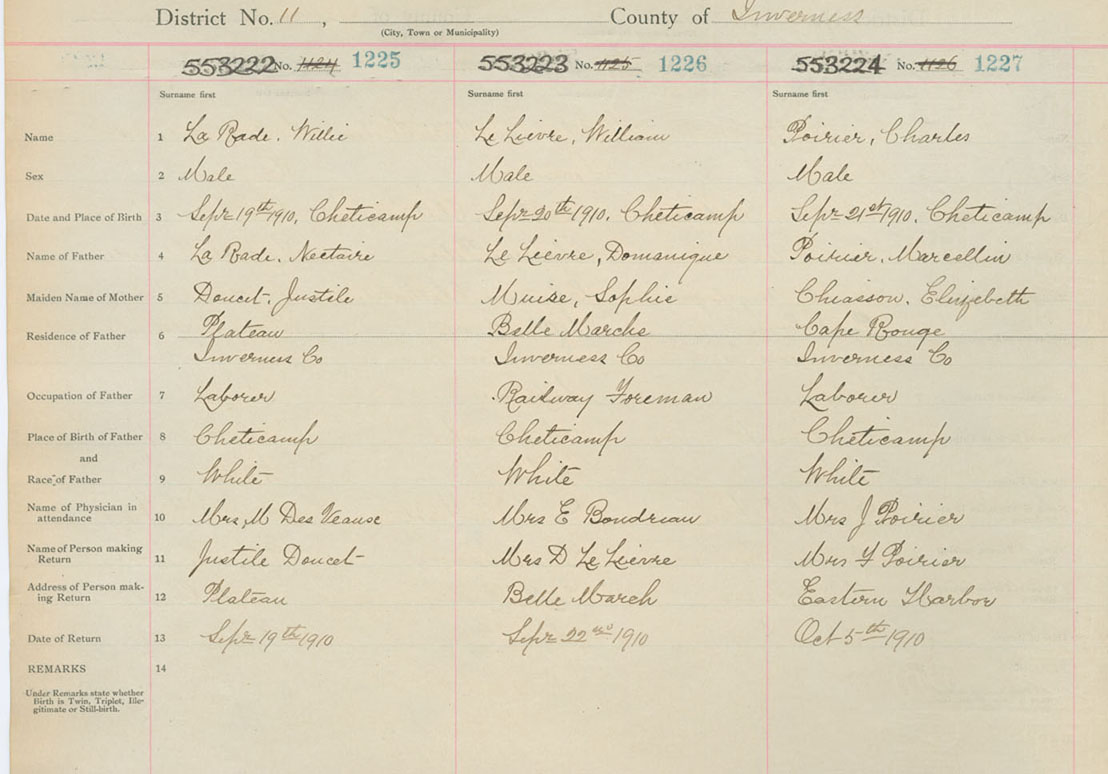 District No. 11 , County of Inverness
(City, Town or Municipality)
553222 No. 1124 1225 553223 No. 1125 1226 553224 No. 1126 1227
Surname first Surname first Surname first
Name 1 La Rade, Willie Le Lievre, William Poirier, Charles
Sex 2 Male Male Male
Date and Place of Birth 3 Sepr 19th 1910, Cheticamp Sepr 20th 1910, Cheticamp Sepr 21st 1910, Cheticamp
Name of Father 4 La Rade, Nectaire Le Lievre, Domanique Poirier, Marcellin
Maiden Name of Mother 5 Doucet, Justile Muise, Sophie Chiasson, Elizebeth
Residence of Father 6 Plateau Belle Marche Cape Rouge
Inverness Co Inverness Co Inverness Co
Occupation of Father 7 Laborer Railway Foreman Laborer
Place of Birth of Father 8 Cheticamp Cheticamp Cheticamp
and
Race of Father 9 White White White
Name of Physician in
attendance 10 Mrs M Des Veause Mrs E Boudreau Mrs J Poirier
Name of Person making
Return 11 Justile Doucet Mrs D Le Lievre Mrs F Poirier
Address of Person mak-
ing Return 12 Plateau Belle March Eastern Harbor
Date of Return 13 Sepr 19th 1910 Sepr 22nd 1910 Oct 5th 1910
REMARKS 14
Under Remarks state whether
Birth is Twin, Triplet, Ille-
gitimate or Still-birth.